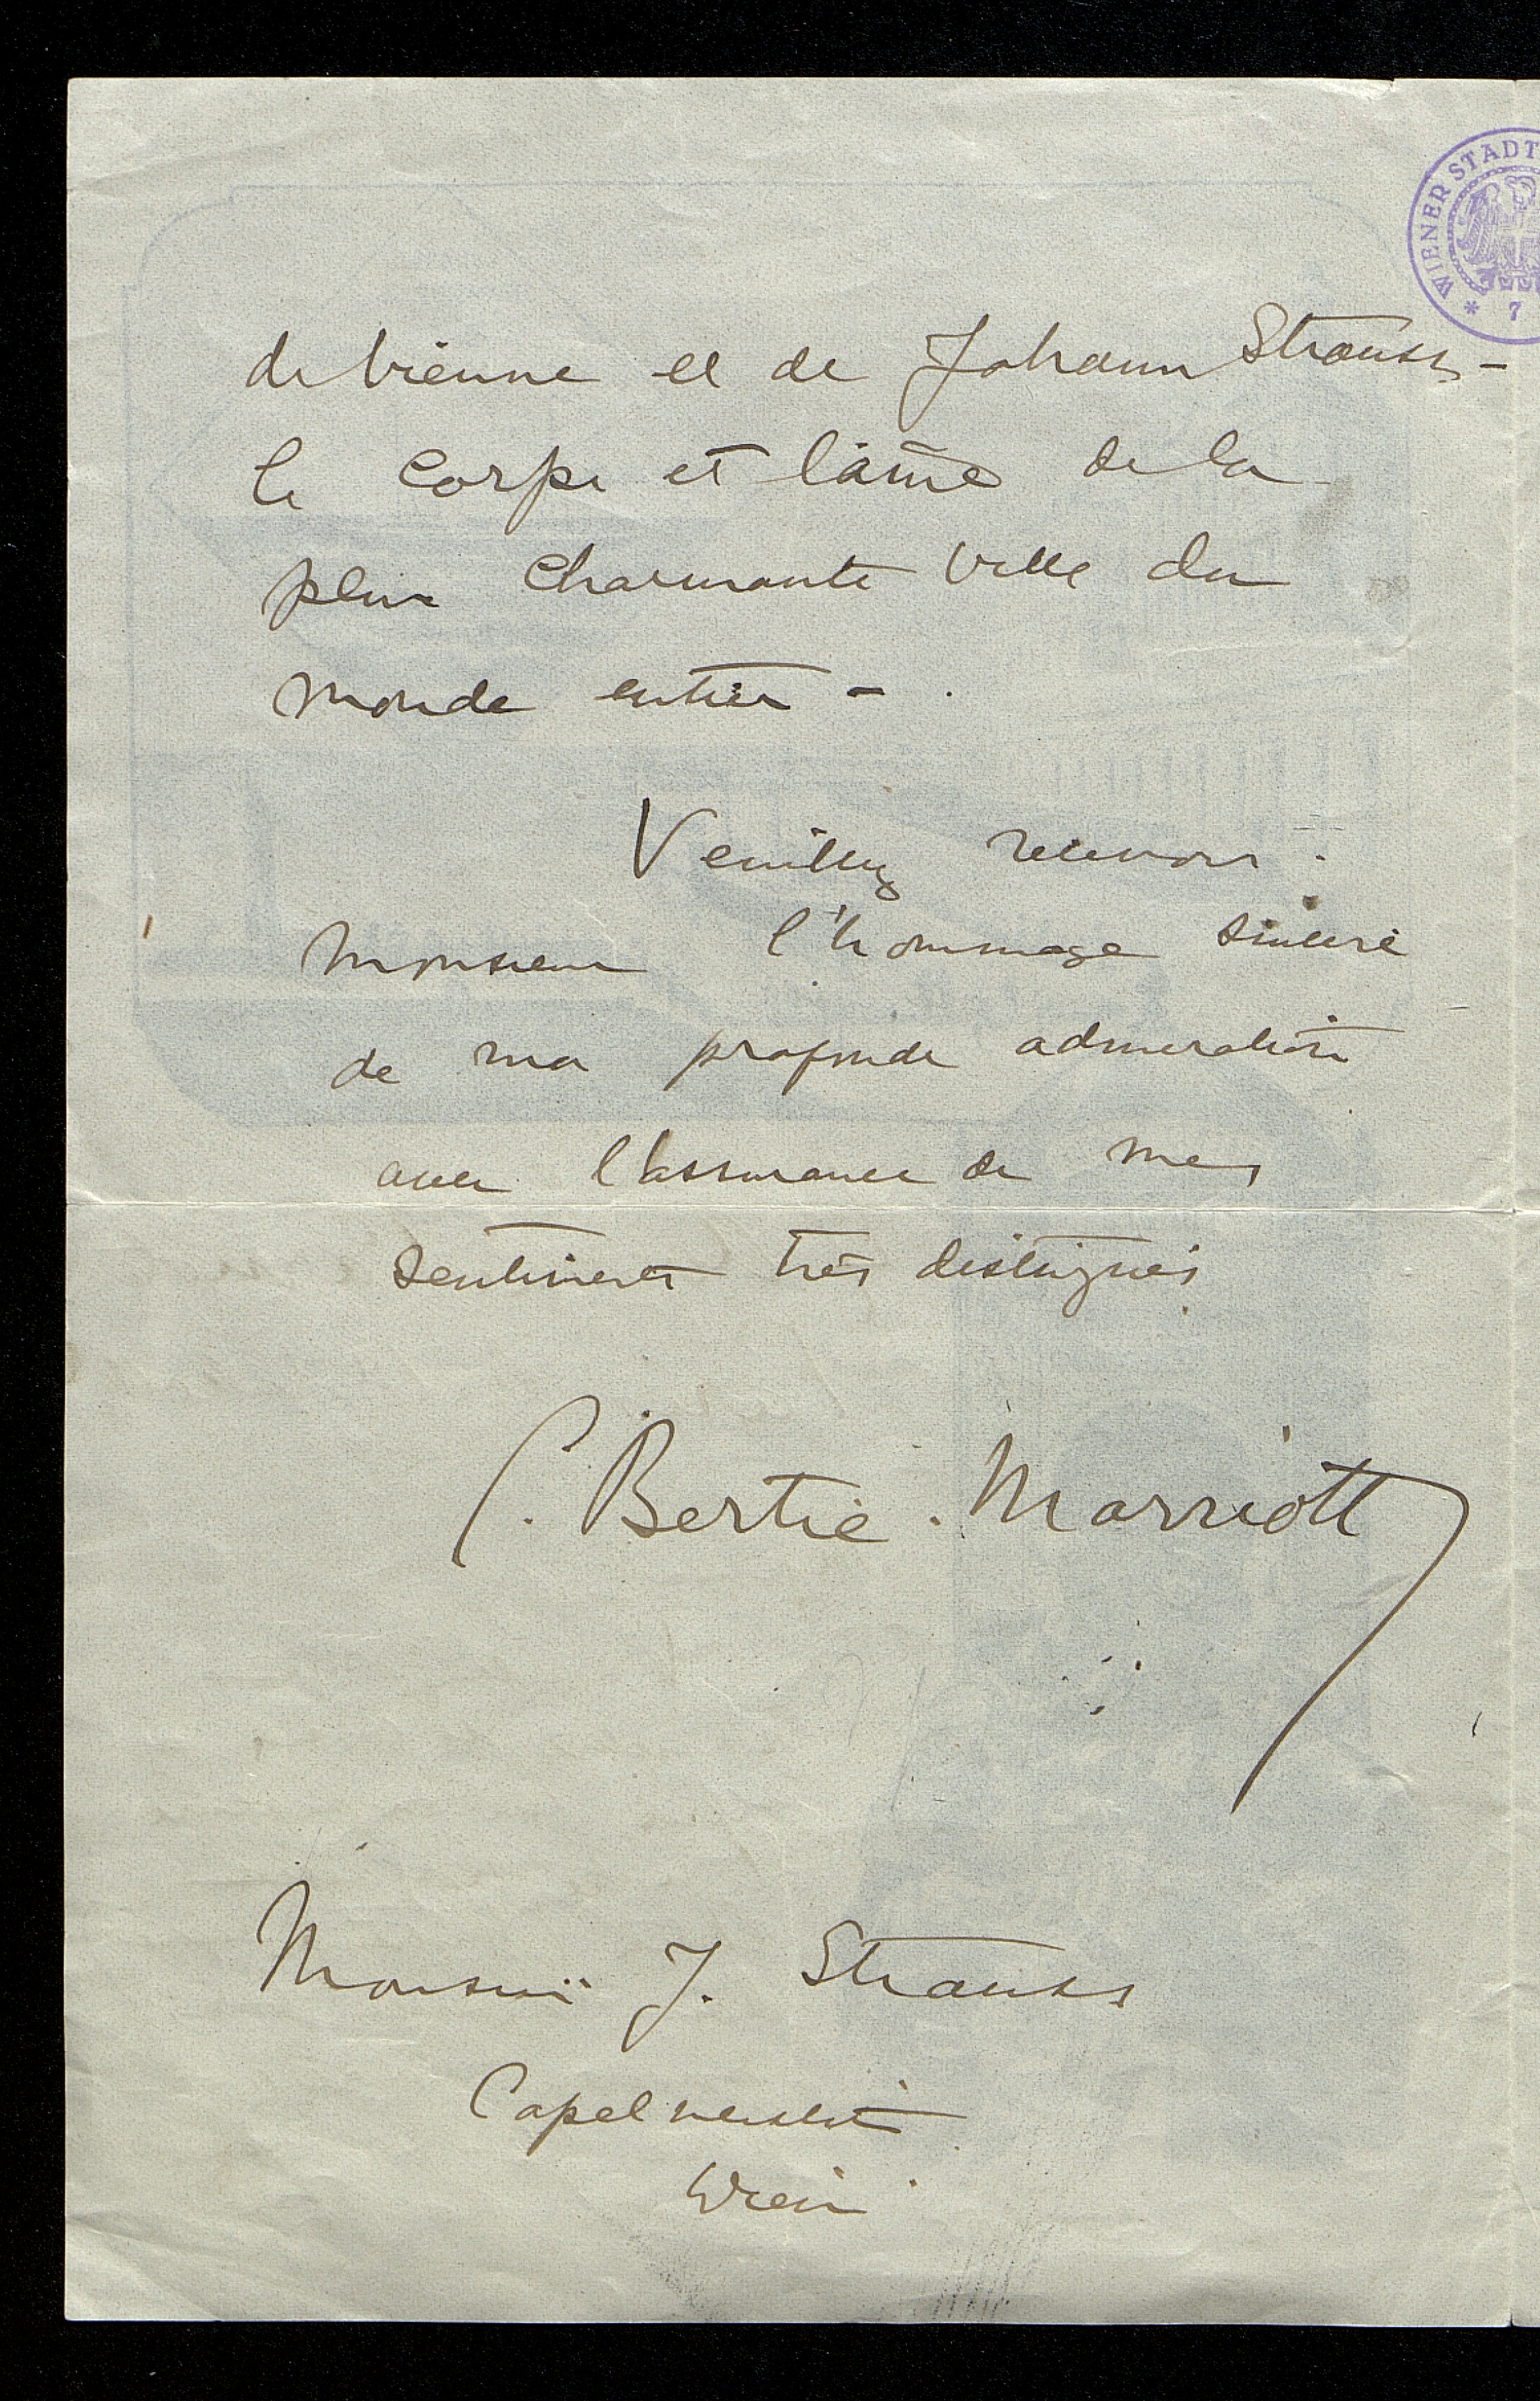 WIENER STADT
* 7
de Vienne et de Johann Strauss -
le Corps et l'âme de la
plus Charmante Ville du
monde entier - .
Veuillez recevoir
Monsieur l'hommage sincère
de ma profonde admiration
avec l'assurance de mes
sentiments très distingués
C. Bertie. Marriott
Monsieur J. Strauss
Capelmeister
Wien